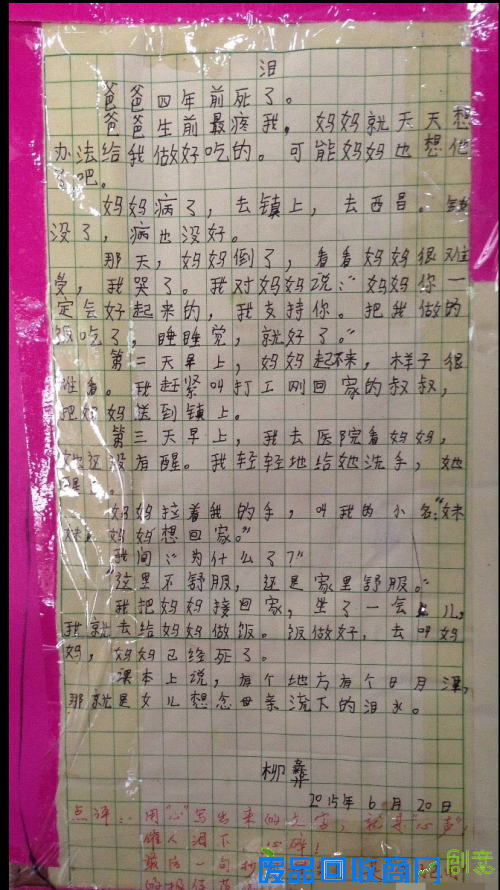 泪
爸爸四年前死了。
爸爸生前最疼我，妈妈就天天想
办法给我做好吃的。可能妈妈也想他
了吧。
妈妈病了，去镇上，去西昌。钱
没了，病也没好。
那天，妈妈倒了，看看妈妈很难
受，我哭了。我对妈妈说：“妈妈你一
定会好起来的，我支持你。把我做的
饭吃了，睡睡觉，就好了。”
第二天早上，妈妈起不来，样子很
难看。我赶紧叫打工刚回家的叔叔，
把妈妈送到镇上。
第三天早上，我去医院看妈妈，
她还没有醒。我轻轻地给她洗手，她
醒了。
妈妈拉着我的手，叫我的小名：“妹
妹，妈妈想回家。”
我问：“为什么了？”
“这里不舒服，还是家里舒服。”
我把妈妈接回家，坐了一会儿，
我就去给妈妈做饭。饭做好，去叫妈
妈，妈妈已经死了。
课本上说，有个地方有个日月潭，
那就是女儿想念母亲流下的泪水。
柳彝
2015年6月20日
点评：用“心”写出来的文字，就是“心声”，
催人泪下，心碎！
最后一句
废品回收商网
创意